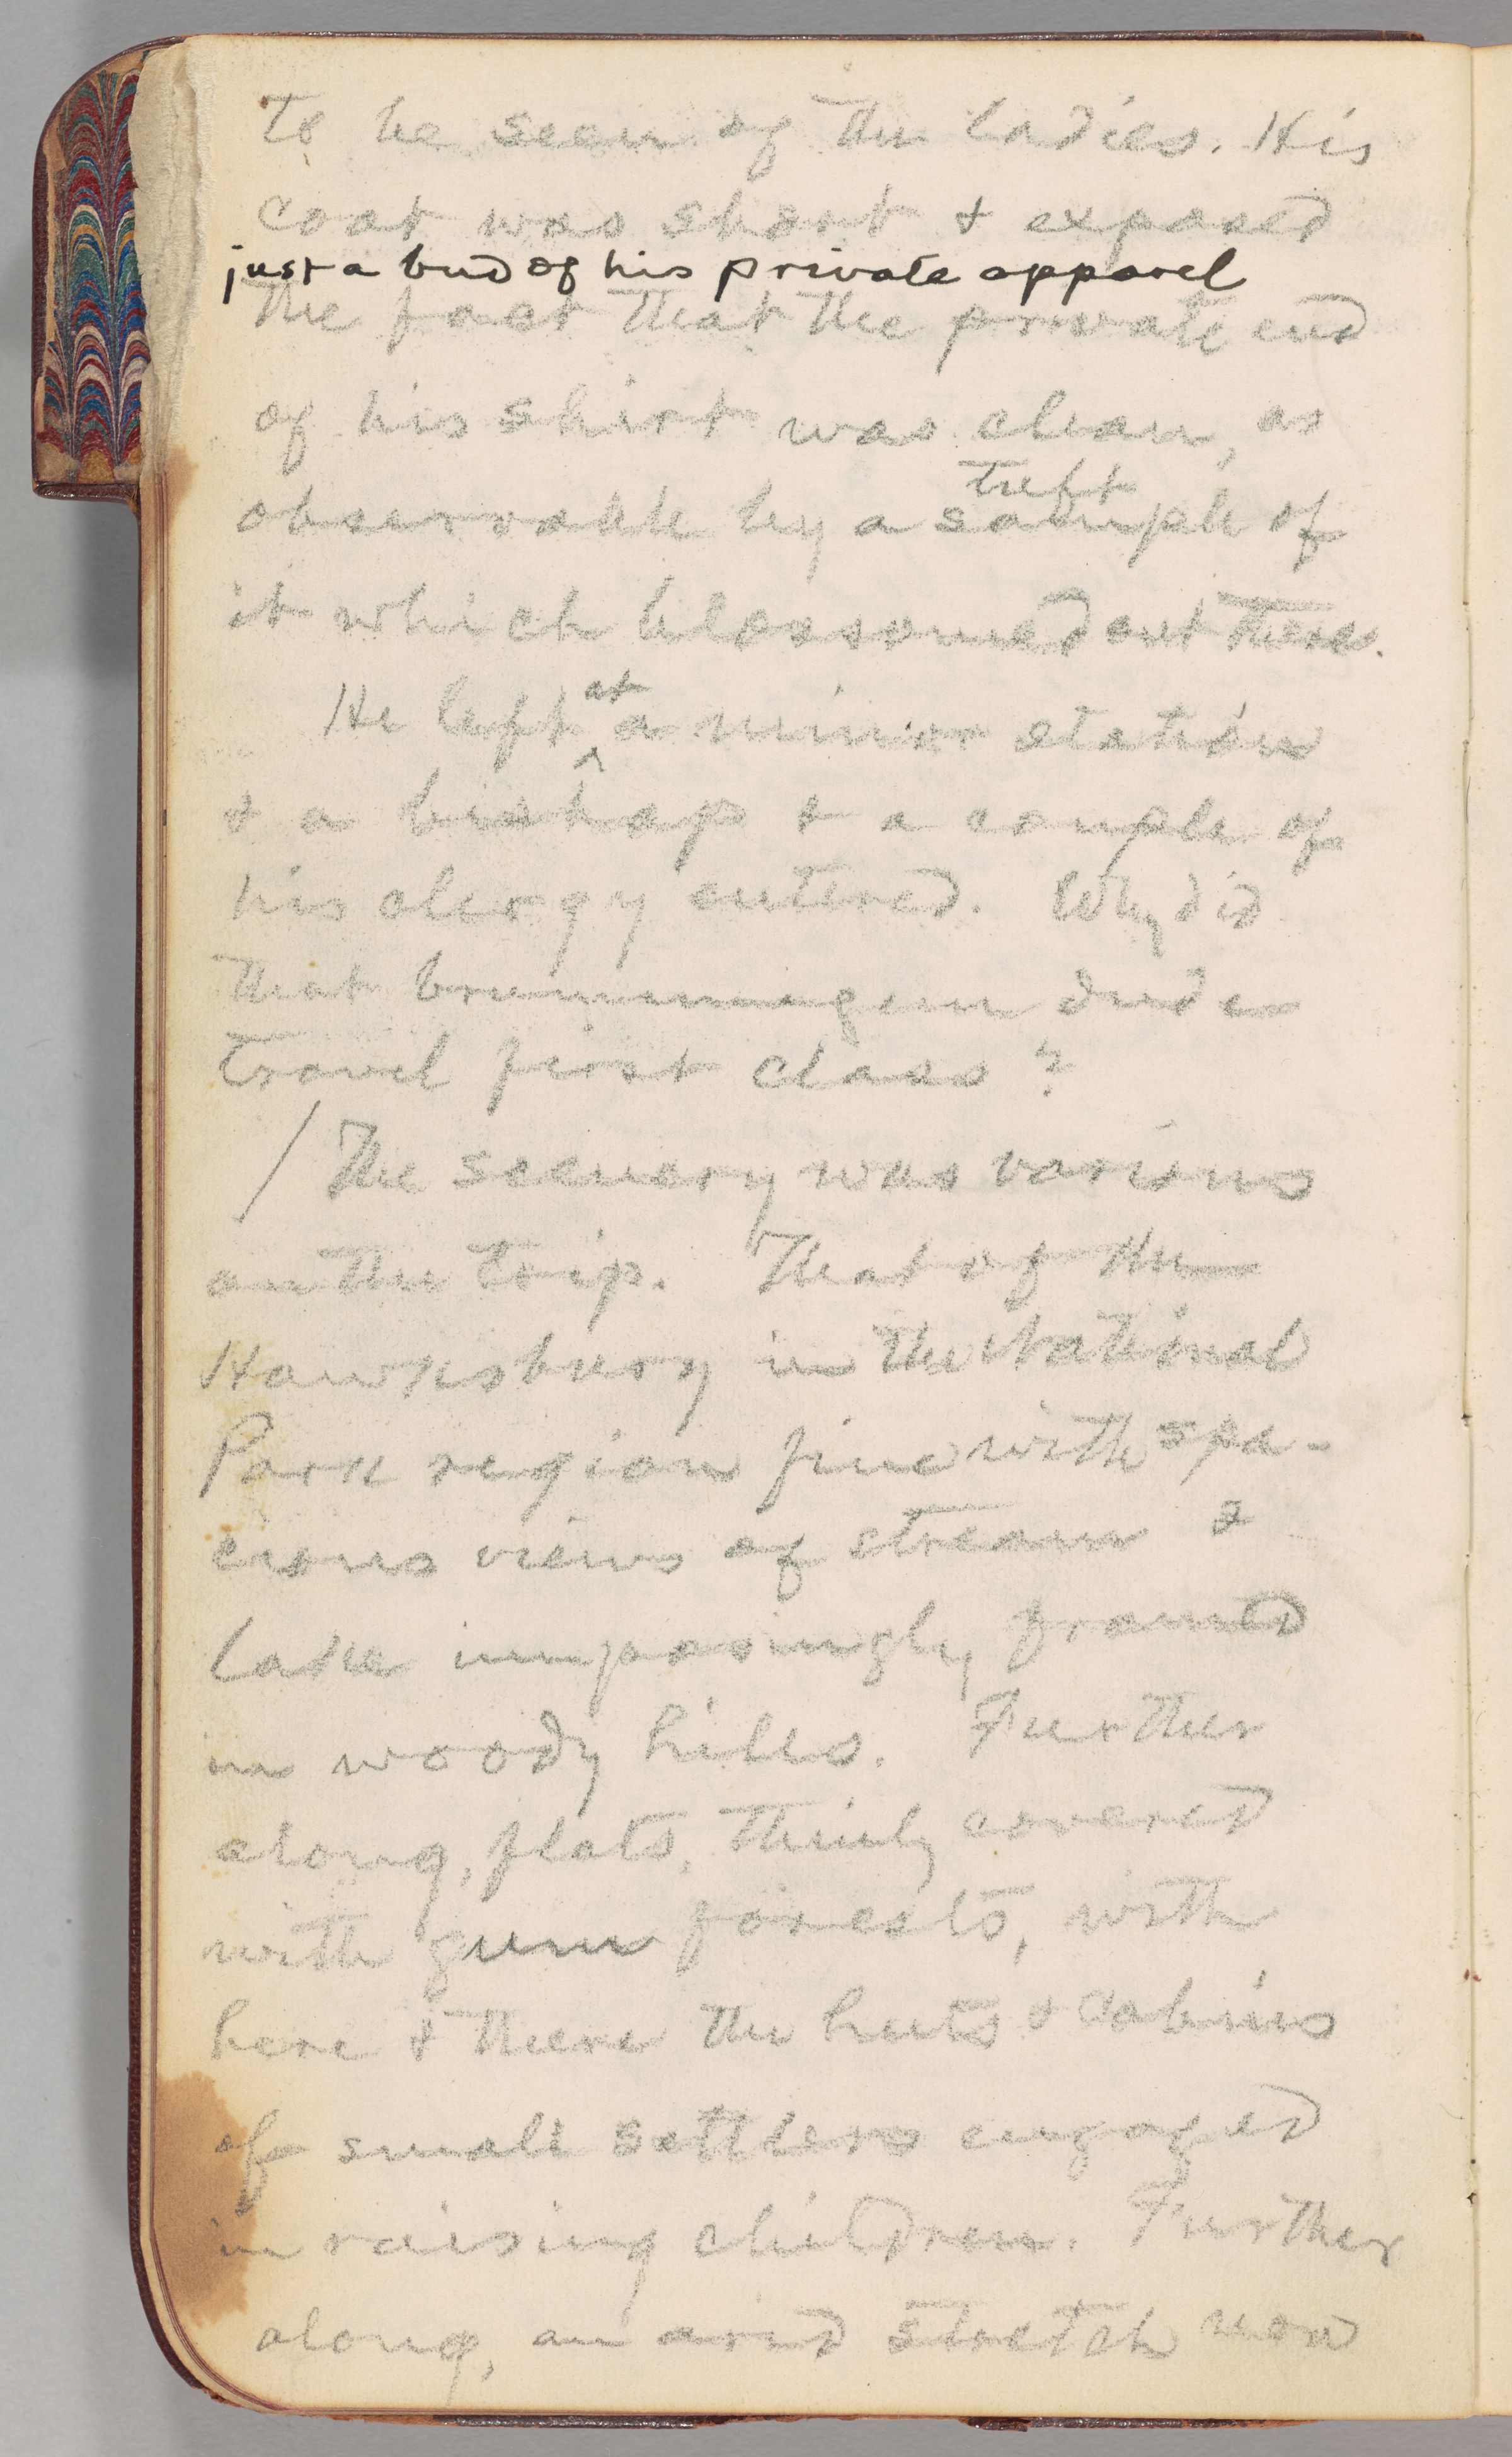 to be seen of the ladies. His
coat was short & exposed
just a bud of his private apparel
the fact that the private end
of his shirt was clean, as
tuft
observable by a sample of
it which blossomed out there.
He left at a minor station
& a bishop & a couple of
his clergy entered. Why did
that brummagem dude
travel first class?
/ The scenery was various
on the trip. That of the
Hawksbury in the National
Park region fine with spa-
cious views of stream &
lake imposingly framed
in woody hills. Further
along, flats, thinly covered
with gum forests, with
here & there the huts & cabins
of small settlers engaged
in raising children. Further
along, an arid stretch now